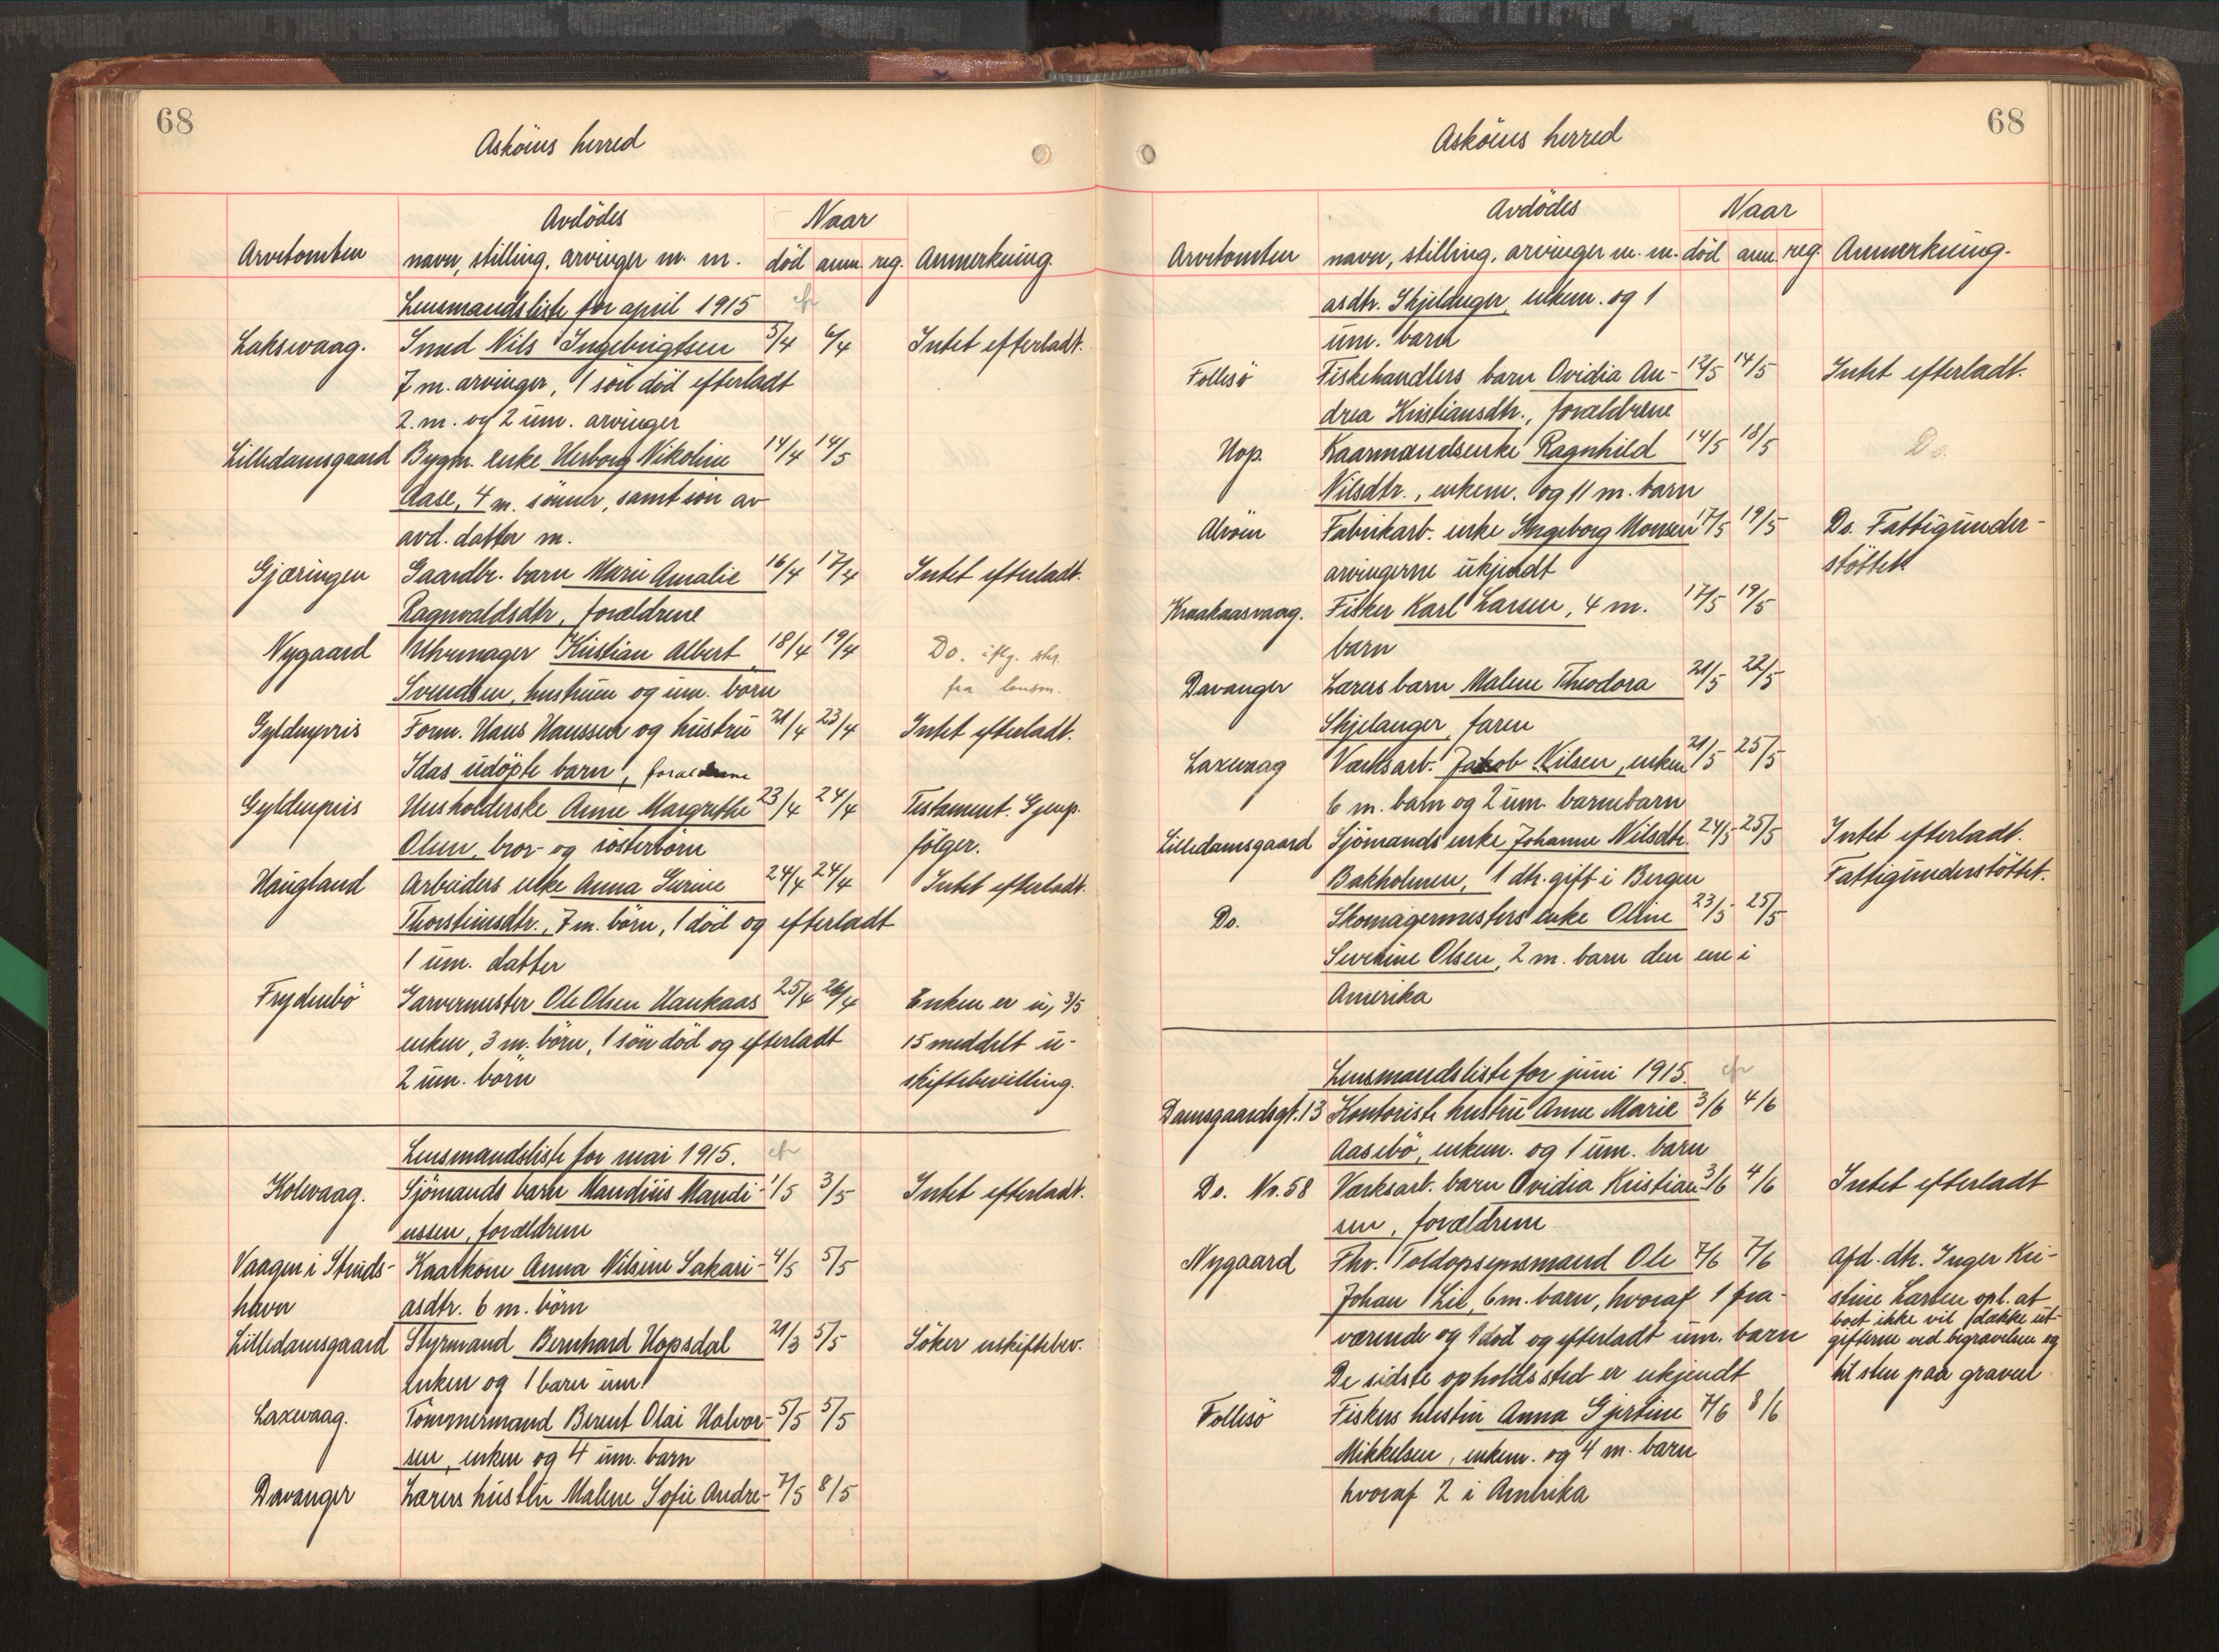 68
Asköens herred
Avdödes
Naar
Arvetomten navn, stilling, arvinger m. m. död anm. reg. Anmerkning.
Lensmandsliste for april 1915
Laksevaag. Smed Nils Ingebrigtsen 5/4 6/4 Intet efterladt.
7 m. arvinger, 1 sön död efterladt
2 m. og 2 um. arvinger
Lilledamsgaard Bygm. enke Herborg Nikoline 14/4 14/5
Aase, 4 m. sönner, samt sön av
avd. datter m.
Gjæringen Gaardbr. barn Marie Amalie 16/4 17/4 Intet efterladt.
Ragnvaldsdtr, forældrene
Nygaard Uhrmager Kristian Albert 18/4 19/4 Do. iflg. skr.
Svendsen, hustrum og um. börn fra lensm.
Gyldenpris Form. Hans Hanssen og hustru 21/4 23/4 Intet efterladt.
Idas udöpte barn, forældrene
Gyldenpris Husholderske Anne Margrethe 23/4 24/4 Testament. Gjenp.
Olsen, bror- og sösterbörn fölger.
Haugland Arbeiders enke Anna Gurine 24/4 24/4 Intet efterladt.
Thorsteinsdtr., 7 m. börn, 1 död og efterladt
1 um. datter
Frydenbö Garvermester Ole Olsen Haukaas 25/4 26/4 Enken er u, 3/5
enken, 3 m. börn, 1 sön död og efterladt 15 meddelt u-
2 um. börn skiftebevilling.
Lensmandsliste for mai 1915.
Kolevaag. Sjömands barn Mandius Mandi- 1/5 3/5 Intet efterladt.
ussen, forældrene
Vaagen i Struds- Kaarkone Anna Nilsine Sakari- 4/5 5/5
havn asdtr. 6 m. börn
Lilledamsgaard Styrmand Bernhard Hopsdal 21/3 5/5 Söker uskiftebev.
enken og 1 barn um
Laxevaag. Tömmermand Berent Olai Halvor- 5/5 5/5
sen, enken og 4 um. barn
Davanger Lærers hustru Malene Sofie Andre- 7/5 8/5
68
Asköens herred
Avdödes
Naar
Arvetomten navn, stilling, arvinger m. m. död anm. reg. Anmerkning.
asdtr. Skjelanger, enkem. og 1
um. barn
Follesö Fiskehandlers barn Ovidia An- 12/5 14/5 Intet efterladt.
drea Kristiansdtr., forældrene
Hop. Kaarmandsenke Ragnhild 14/5 18/5 Do.
Nilsdtr., enkem. og 11 m. barn
Alvöen Fabrikarb. enke Ingeborg Monsen 17/5 19/5 Do. Fattigunder-
arvingerne ukjendt stöttet.
Kraakaasvaag. Fisker Karl Larsen, 4 m. 17/5 19/5
barn
Davanger Lærers barn Malene Theodora 21/5 22/5
Skjelanger, faren
Laxevaag Værksarb. Jakob Nilsen, enken 21/5 25/5
6 m. barn og 2 um. barnebarn
Lilledamsgaard Sjömands enke Johanne Nilsdtr. 24/5 25/5 Intet efterladt.
Bakholmen, 1 dtr. gift i Bergen Fattigunderstöttet.
Do. Skomagermesters enke Oline 23/5 25/5
Severine Olsen, 2 m. barn den ene i
Amerika
Lensmandsliste for juni 1915.
Damsgaardsgt. 13 Kontorists hustru Anne Marie 3/6 4/6
Aasebö, enkem. og 1 um. barn
Do. Nr. 58 Værksarb. barn Ovidia Kristian- 3/6 4/6 Intet efterladt
sen, forældrene
Nygaard Fhv. Toldopsynsmand Ole 7/6 7/6 Afd. dtr. Inger Kri-
Johan Lie, 6 m. barn, hvoraf 1 fra- stine Larsen opl. at
boet ikke vil dække ut-
værende og 1 död og efterladt um. barn gifterne ved begravelsen og
De sidste opholdssted er ukjendt til sten paa graven
Follesö Fiskers hustru Anna Gjertine 7/6 8/6
Mikkelsen, enkem. og 4 m. barn
hvoraf 2 i Amerika